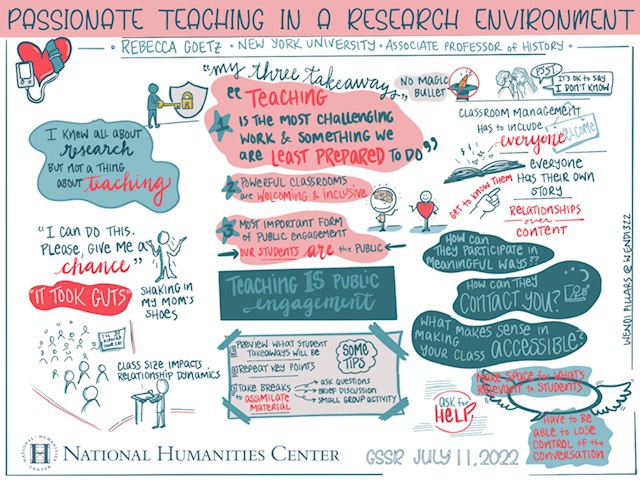 PASSIONATE TEACHING IN A RESEARCH ENVIRONMENT
· REBECCA GOETZ · NEW YORK UNIVERSITY · ASSOCIATE PROFESSOR of HISTORY ·
"my three takeaways"
"TEACHING
1 IS THE MOST CHALLENGING
WORK & SOMETHING WE
ARE LEAST PREPARED TO DO"
2 POWERFUL CLASSROOMS
are WELCOMING & INCLUSIVE
3 MOST IMPORTANT FORM
OF PUBLIC ENGAGEMENT
OUR STUDENTS are THE PUBLIC
TEACHING IS PUBLIC
engagement
I KNEW ALL ABOUT
research
BUT NOT A THING
ABOUT teaching
"I CAN DO THIS.
PLEASE, GIVE ME A
chance"
"IT TOOK GUTS"
SHAKING IN
MY MOM'S
SHOES
CLASS SIZE IMPACTS
RELATIONSHIP DYNAMICS
SOME
TIPS
1 PREVIEW WHAT STUDENT
TAKEAWAYS WILL BE
2 REPEAT KEY POINTS
3 TAKE BREAKS
to ASSIMILATE
MATERIAL
ASK QUESTIONS
BRIEF DISCUSSION
SMALL GROUP ACTIVITY
NO MAGIC
BULLET
PSST
IT'S OK TO SAY
I DON'T KNOW
CLASSROOM MANAGEMENT
HAS TO INCLUDE
everyone
welcome
EVERYONE
HAS THEIR OWN
STORY
GET TO KNOW THEM
RELATIONSHIPS
over
CONTENT
HOW CAN
THEY PARTICIPATE IN
MEANINGFUL WAYS??
HOW CAN THEY
CONTACT YOU?
WHAT MAKES SENSE IN
MAKING
YOUR CLASS ACCESSIBLE?
MAKE SPACE for WHAT'S
RELEVANT to STUDENTS
ask for
HELP
HAVE TO BE
ABLE TO LOSE
CONTROL of the
CONVERSATION
WENDI PILLARS @WENDI322
NATIONAL HUMANITIES CENTER
H
NATIONAL HUMANITIES CENTER
GSSR JULY 11, 2022